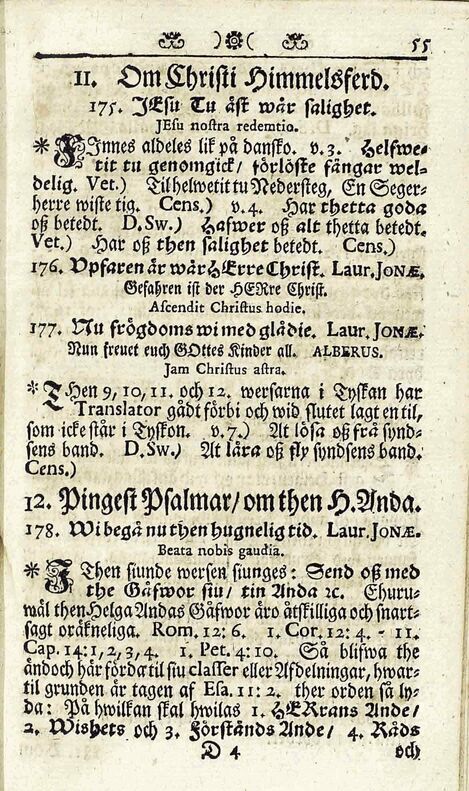 )o( 55
11. Om Christi Himmelsferd.
175. JEsu Tu äst wår salighet.
JEsu nostra redemtio.
* FInnes aldeles lik på dansko. v. 3. Helfwe-
tit tu genomgick/ förlöste fångar wel-
delig. Vet.) Til helwetit tu Nedersteg, En Seger-
herre wiste tig. Cens.) v. 4. Har thetta goda
oß betedt. D. Sw.) Hafwer oß alt thetta betedt.
Vet.) Har oß then salighet betedt. Cens.)
176. Upfaren är wår HErre Christ. Laur. JONÆ.
Gefahren ist der HERre Christ.
Ascendit Christus hodie.
177. Nu frögdoms wi med glädie. Laur. JONÆ.
Nun freuet euch GOttes Kinder all. ALBERUS.
Jam Christus astra.
* THen 9, 10, 11. och 12. wersarna i Tyskan har
Translator gådt förbi och wid slutet lagt en til,
som icke står i Tyskon. v. 7.) At lösa oß frå synd-
sens band. D. Sw.) At lära oß fly syndsens band.
Cens.)
12. Pingest Psalmar/ om then H. Anda.
178. Wi begå nu then hugnelig tid. Laur. JONÆ.
Beata nobis gaudia.
* I Then siunde wersen siunges: Send oß med
the Gåfwor siu/ tin Anda ꝛc. Ehuru-
wäl then Helga Andas Gåfwor äro åtskilliga och snart-
sagt oräkneliga. Rom. 12: 6. 1. Cor. 12: 4. - 11.
Cap. 14: 1, 2, 3, 4. 1. Pet. 4: 10. Så blifwa the
ändoch här förda til siu classer eller Afdelningar, hwar-
til grunden är tagen af Esa. 11: 2. ther orden så ly-
da: På hwilkan skal hwilas 1. HERrans Ande/
2. Wishets och 3. Förstånds Ande/ 4. Råds
D 4 och